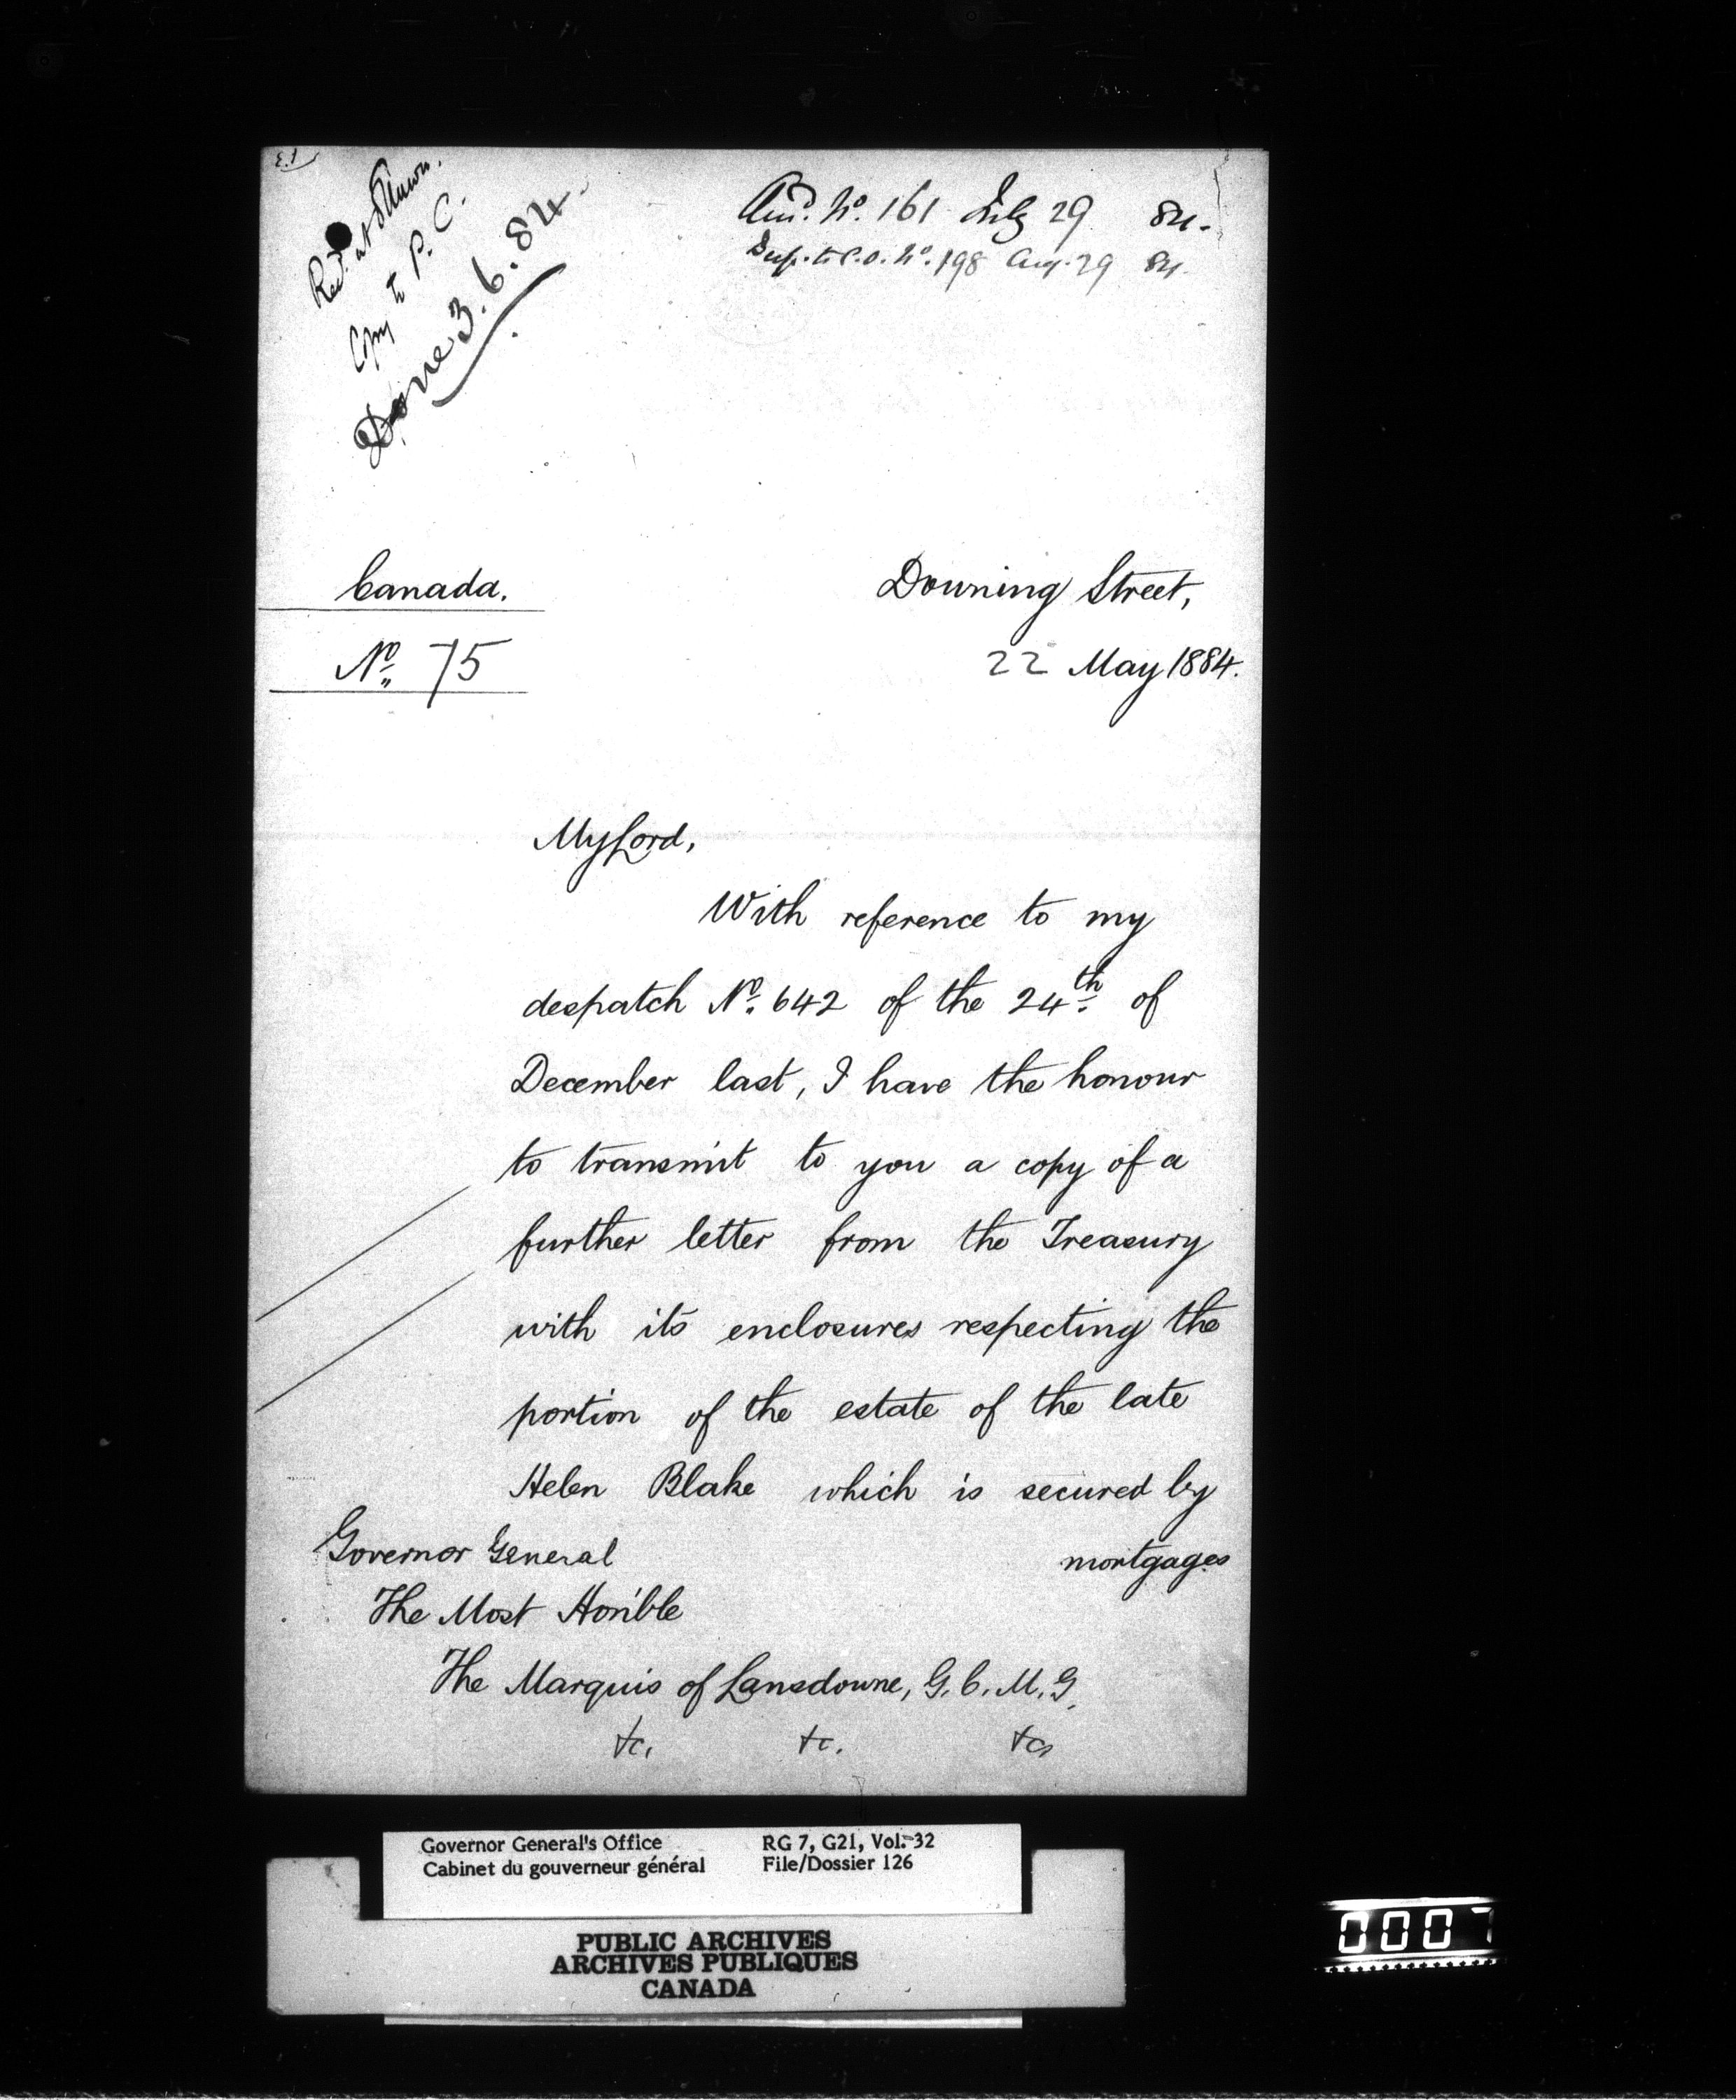 Recd. at Ottawa.
Copy to P. C.
Done 3.6.84.
Ansd. No. 161 July 29 84.
Desp. to C.O. No. 198 Aug. 29 84.
Canada.
No. 75
Downing Street,
22 May 1884.
My Lord,
With reference to my
despatch No. 642 of the 24th. of
December last, I have the honour
to transmit to you a copy of a
further letter from the Treasury
with its enclosures respecting the
portion of the estate of the late
Helen Blake which is secured by
mortgages
Governor General
The Most Hon'ble
The Marquis of Lansdowne, G.C.M.G.
&c. &c. &c.
Governor General's Office
Cabinet du gouverneur général
RG 7, G21, Vol. 32
File/Dossier 126
PUBLIC ARCHIVES
ARCHIVES PUBLIQUES
CANADA
0007